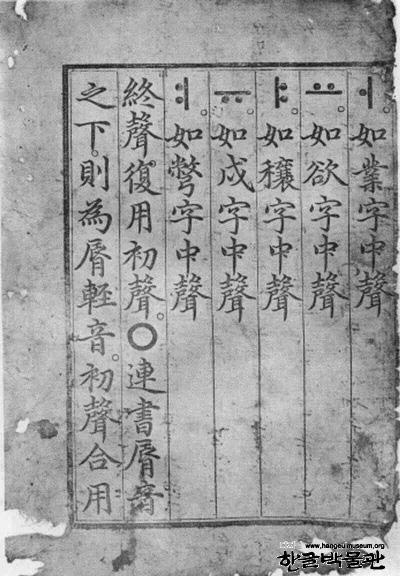 ㅓ。如業字中聲
ㅛ。如欲字中聲
ㅑ。如穰字中聲
ㅠ。如戌字中聲
ㅕ。如彆字中聲
終聲。復用初聲。○連書脣音
之下。則為脣軽音。初聲合用
www.hangeulmuseum.org
한글박물관